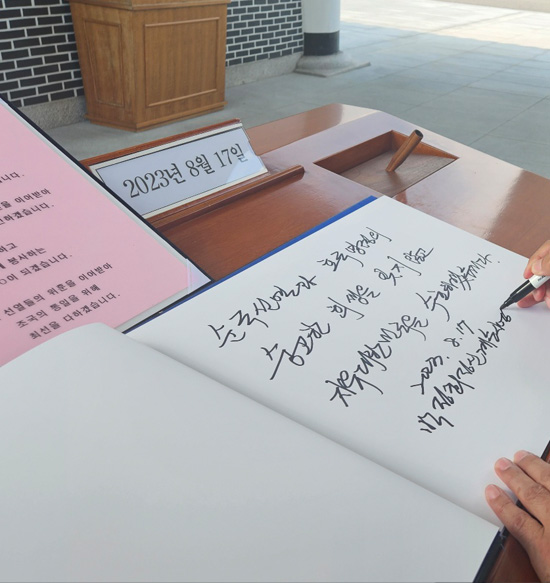 니다.
을 이어받아
하겠습니다.
하고
봉사하는
이 되겠습니다.
선열들의 위훈을 이어받아
조국의 통일을 위해
최선을 다하겠습니다.
2023년 8월 17일
순국선열과 호국영령의
숭고한 희생을 잊지 않고
자유대한민국을 수호하겠습니다.
2023. 8. 17